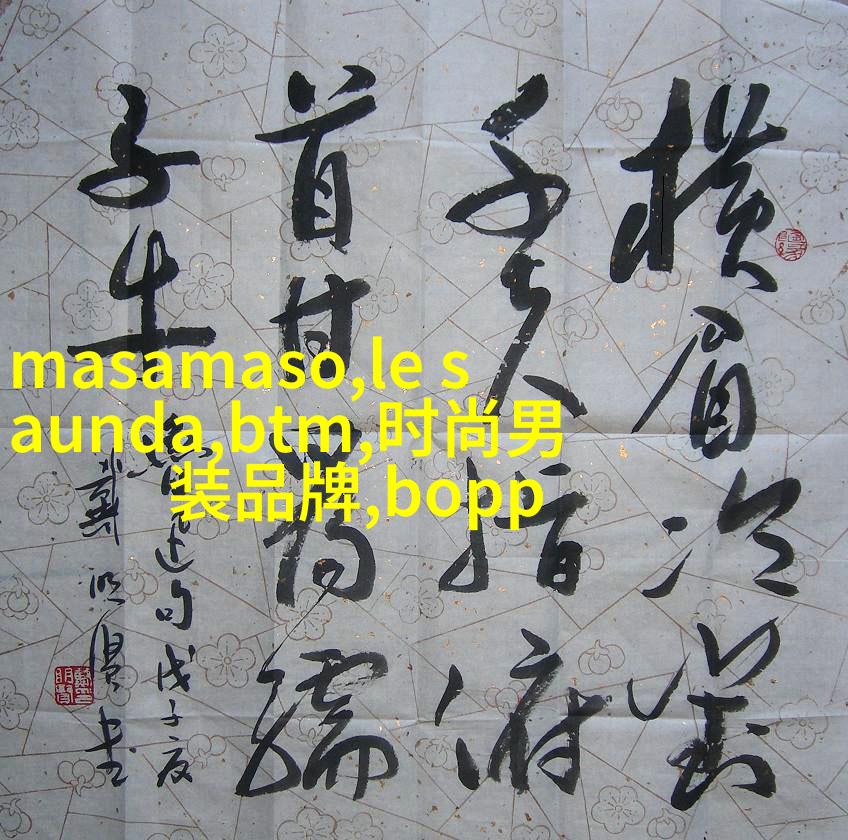 横眉冷對
千夫指俯
首甘为孺
子牛
迅句戊子夏
戴明贤书
masamaso,le s
aunda,btm,时尚男
装品牌,bopp